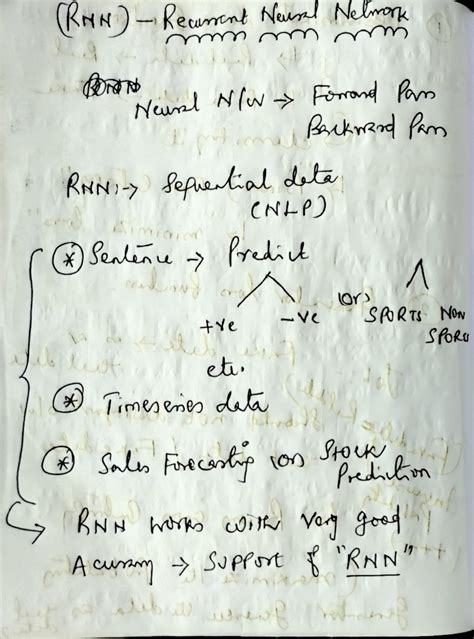 (RNN) - Recurrent Neural Network
Neural N/W → Forward Pass
Backward Pass
RNN:→ Sequential data
(NLP)
* Sentence → Predict
+ve -ve (or) SPORTS NON
SPORTS
etc.
* Timeseries data
* Sales Forecasting (or) Stock
Prediction
RNN works with very good
Acurany → Support of "RNN"